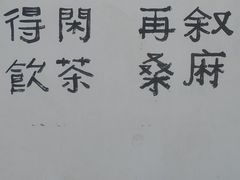 得閑
飲茶
再叙
桑麻